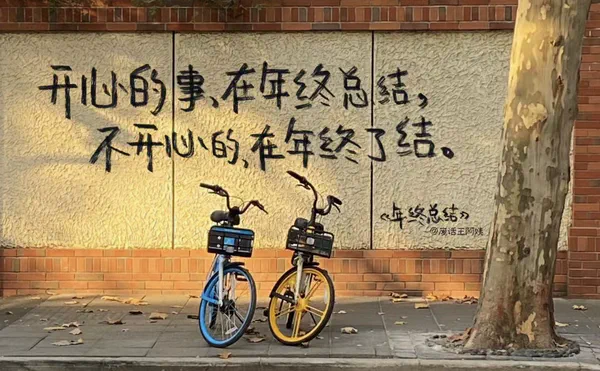 开心的事、在年终总结，
不开心的，在年终了结。
《年终总结》
@废话王阿姨